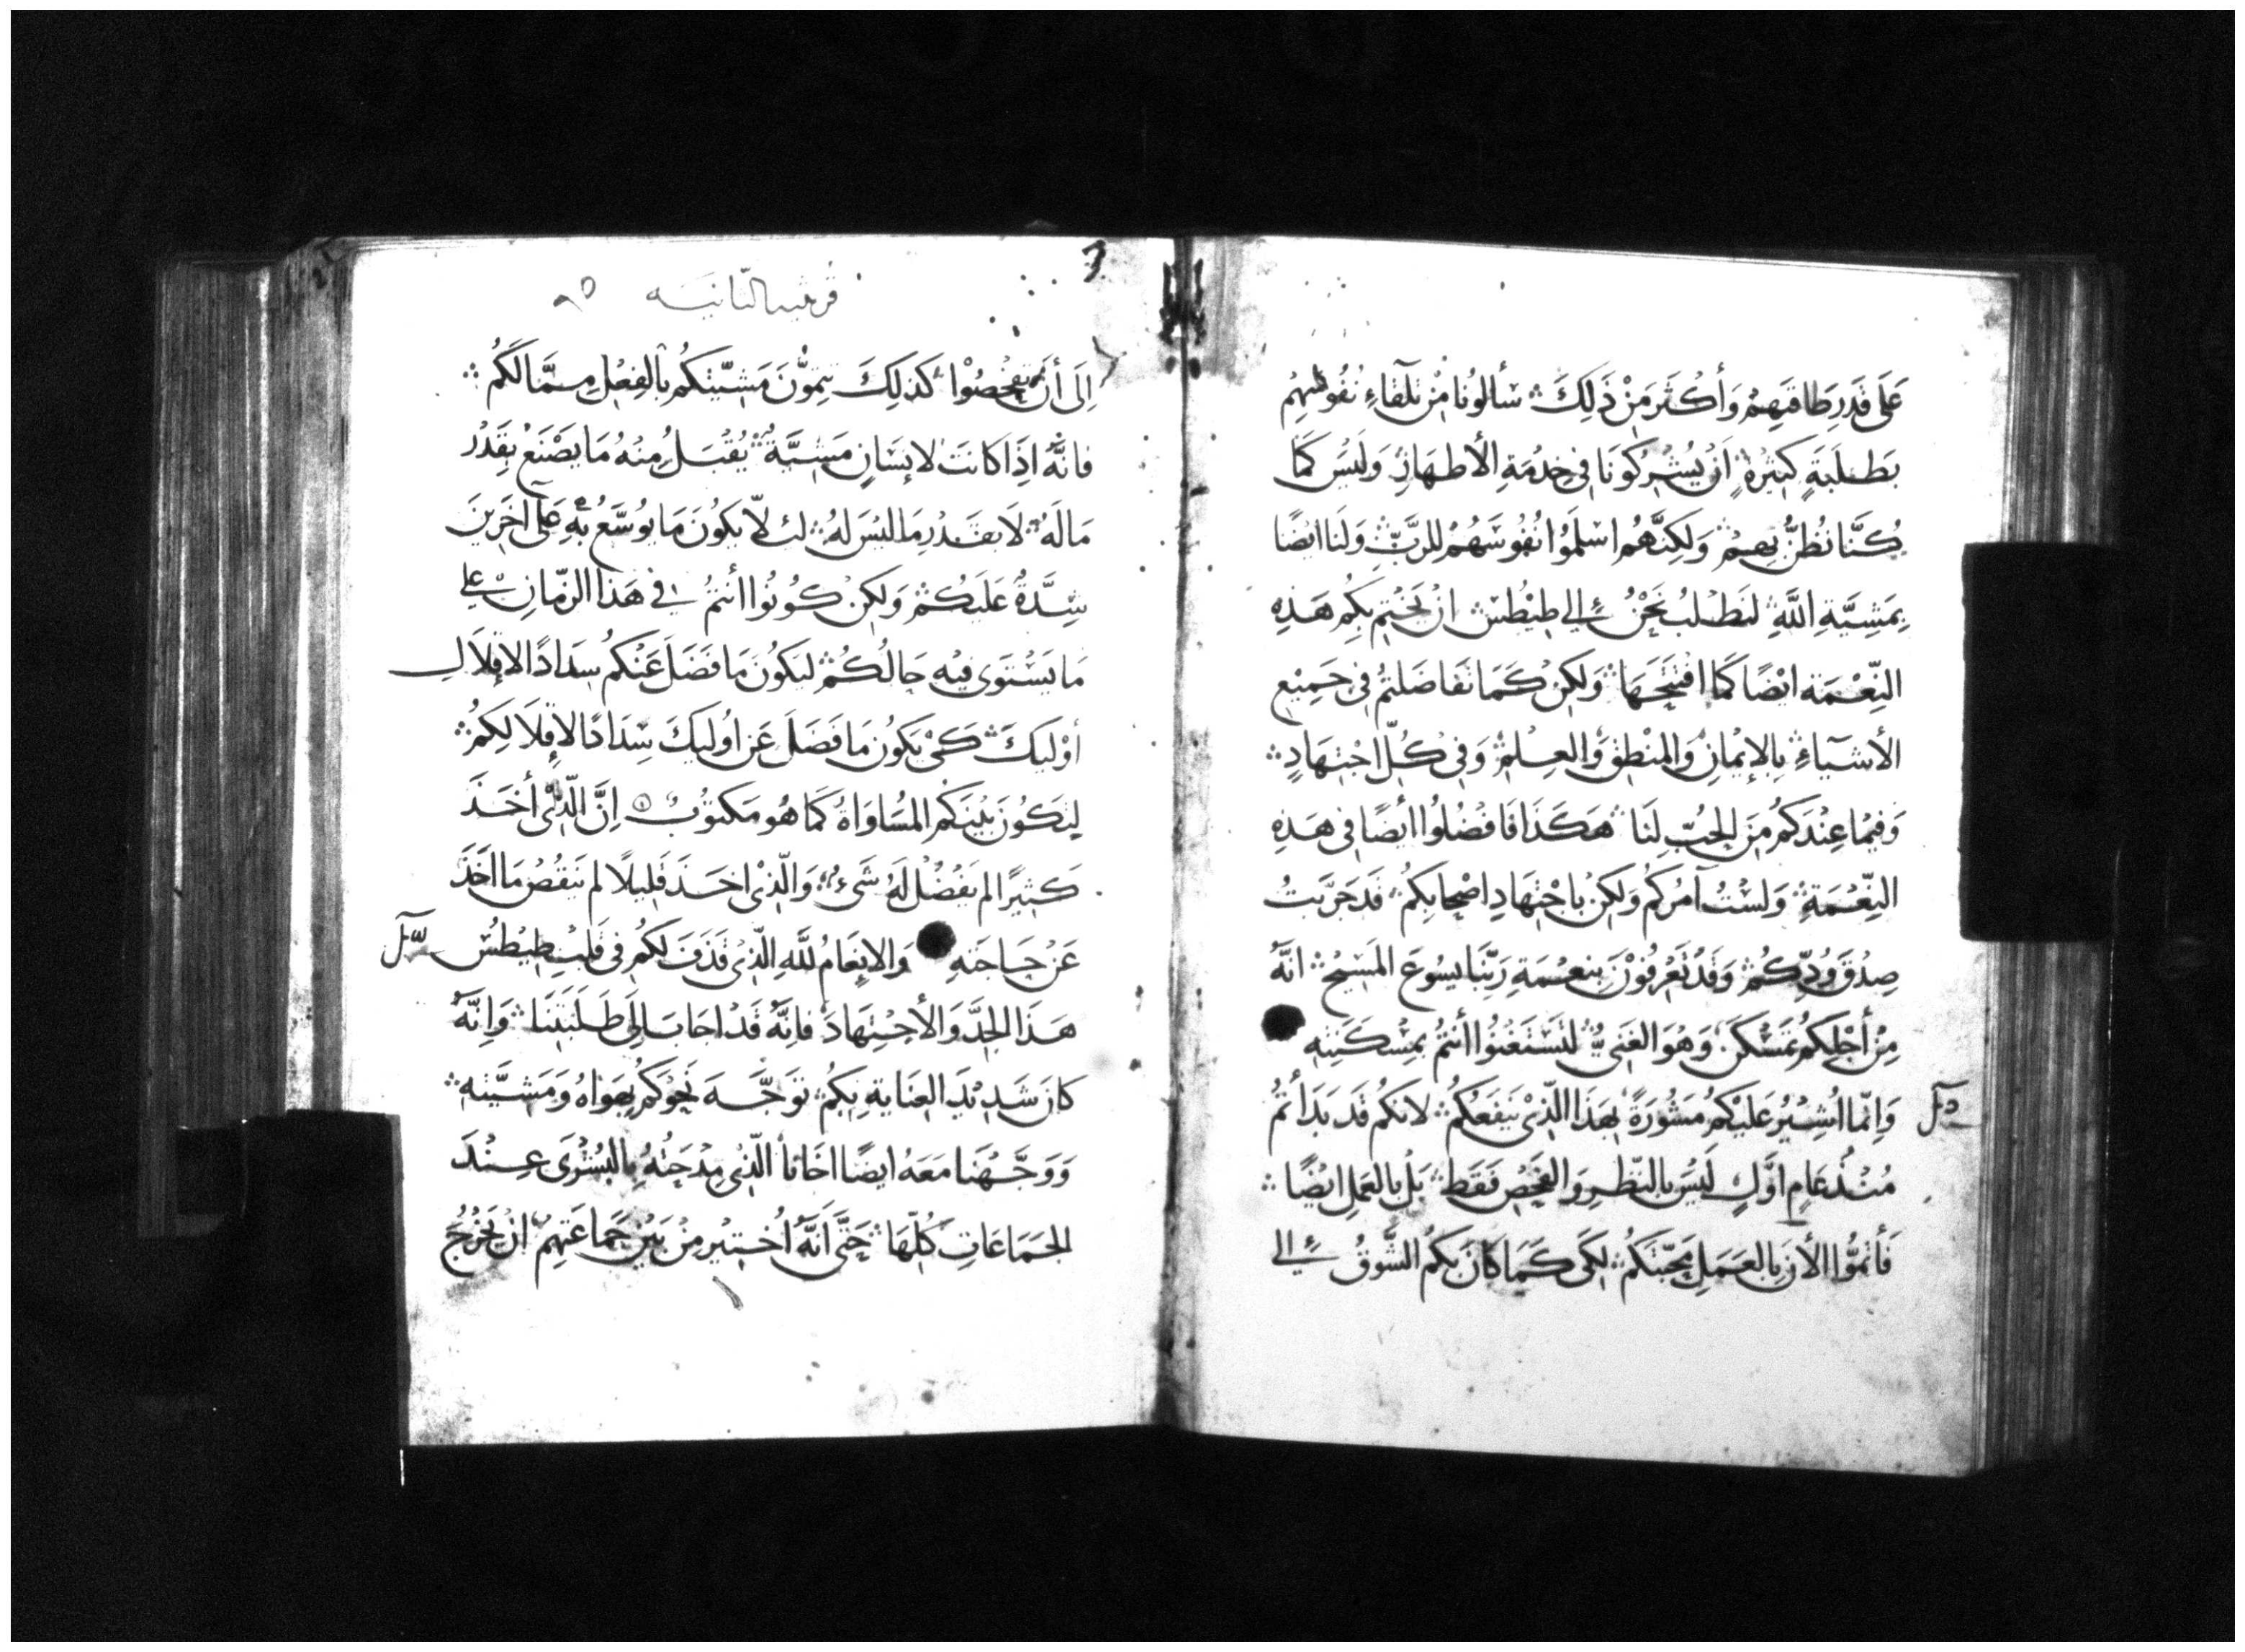 عَلَى قَدَرِ طَاقَتِهِمْ وَأَكْثَرَ مِنْ ذَلِكَ سَألُونَا مِنْ تِلْقَاءِ نُفُوسِهِمْ
بَطَلَبَةٍ كَثِيرَةٍ اَنْ يُشْرِكُونَا فِي خِدْمَةِ الأَطهَارِ وَلَيسَ كَمَا
كُنَّا نُظنُّ بِهِمْ وَلَكِنَّهُم اسْلَمُوا نُفُوسَهُمْ للرَّبِّ وَلَنَا ايضًا
بِمَشِيَّةِ اللَّهِ لنَطلبُ نَحْنُ إلى طِيْطُسْ انْ يَخْتِم بِكُم هَذِهِ
النِّعْمَة ايْضًا كَمَا افْتَتَحَهَا وَلَكِنْ كَمَا تَفَاضَلتُم فِى جَمِيْعِ
الأَشيَآءِ بِالإيْمَانِ وَالمنْطِقِ وَالعِلمِ وَفِى كُلّ اجْتِهَادٍ
وَفِيمَا عِنْدَكُم مِنَ الحُبّ لِنَا هَكَذَا فَافْضُلُوا أيضًا فى هَذِهِ
النِّعْمَةِ وَلسْتُ آمُرُكُم وَلكِنْ بِاجْتِهَادِ اصْحَابِكُم قَد جَرَّبَتُ
صِدْقَ وُدِّكُم وَقَدْ تَعْرِفُوْنَ بِنِعْمَةِ رَبِّنَا يسُوعَ المَسِيْح انَّهُ
مِنْ أَجْلِكُم تَمَسْكَنَ وَهُوَ الغَنيُّ لتَسْتَغْنُوا أنتُمْ بِمَسْكَنَتِهِ
وَاِنّمَا اُشِيْرُ عَليْكُم مَشُورَةً بِهَذَا الّذِى يَنفَعُكُم لانكُم قَد بَدَأتُم
مُنْذُ عَامِ اوَّلٍ لَيْسَ بالنّظرِ وَالفَحْصِ فَقَط بَلْ بالعَمَلِ ايْضًا
فَأتمُّوا الأنَ بِالعَمَلِ مَحَبّتَكُم لكَى كَمَا كَانَ بكُم الشَّوقُ إلى
قرنثيه الثانيه
اِلَى أَنْ تَفْحَصُوْا كَذلِكَ تتِمّوُنَ مَشيّتكُم بِالفِعْلِ مِمَّا لَكُم
فانَّهُ اِذَا كَانَت لإنسَانٍ مَشيَّةٌ يُقْبَلُ مِنْهُ مَا يَصْنَعُ بِقَدْر
مَا لَهُ لَا بِقَدْرِ مَا ليْسَ لهُ لئلّا يكُونَ مَا يوُسَّعُ بِهِ عَلَى آخَرِينَ
شِدَّةٌ عَلَيكُمْ وَلكِنْ كُونُوا أنتُمْ فِى هَذَا الزّمَانِ على
مَا يَسْتَوى فِيْهِ حَالُكُمْ ليَكُونَ مَا فَضَلَ عَنْكُم سِدَادًا لإقْلَالِ
أوْلَيكَ كَىْ يَكُونَ مَا فَضَلَ عَن اوُلَيكَ سِدَادًا لإقْلَالِكُم
لِتَكُوْنَ بَيْنَكُم المُسَاوَاةُ كَمَا هُو مَكتوْبٌ اِنَّ الّذِى أخَذَ
كَثِيرًا لم يَفْضُلْ لَهُ شَىءٌ وَالّذِى اخَذَ قَلِيلًا لم يَنقُصْ مَا اخَذَ
عَنْ حَاجَتِهِ وَالانعَامُ للَّهِ الّذِى قَذَفَ لكُم فى قَلبِ طِيطُسْ
هَذَا الجِدَّ وَالأجْتِهَادَ فاِنَّهُ قَدْ اجَابَ إلَى طَلَبَتِنَا وَاِنَّهُ
كَانَ شَدِيْدَ العِنَايَةِ بِكُم تَوَجَّهَ نَحْوَكُم بِهَوَاهُ وَمَشيَّتِه
وَوَجَّهْنَا مَعَهُ ايضًا اخَانَا الّذِى مِدْحَتُهُ بِالبُشْرَى عِنْدَ
الجَمَاعَاتِ كُلّهَا حَتَّى اَنَّهُ اُخْتِيرَ مِنْ بَيْنِ جَمَاعَتِهِمْ انْ يَخْرُجَ